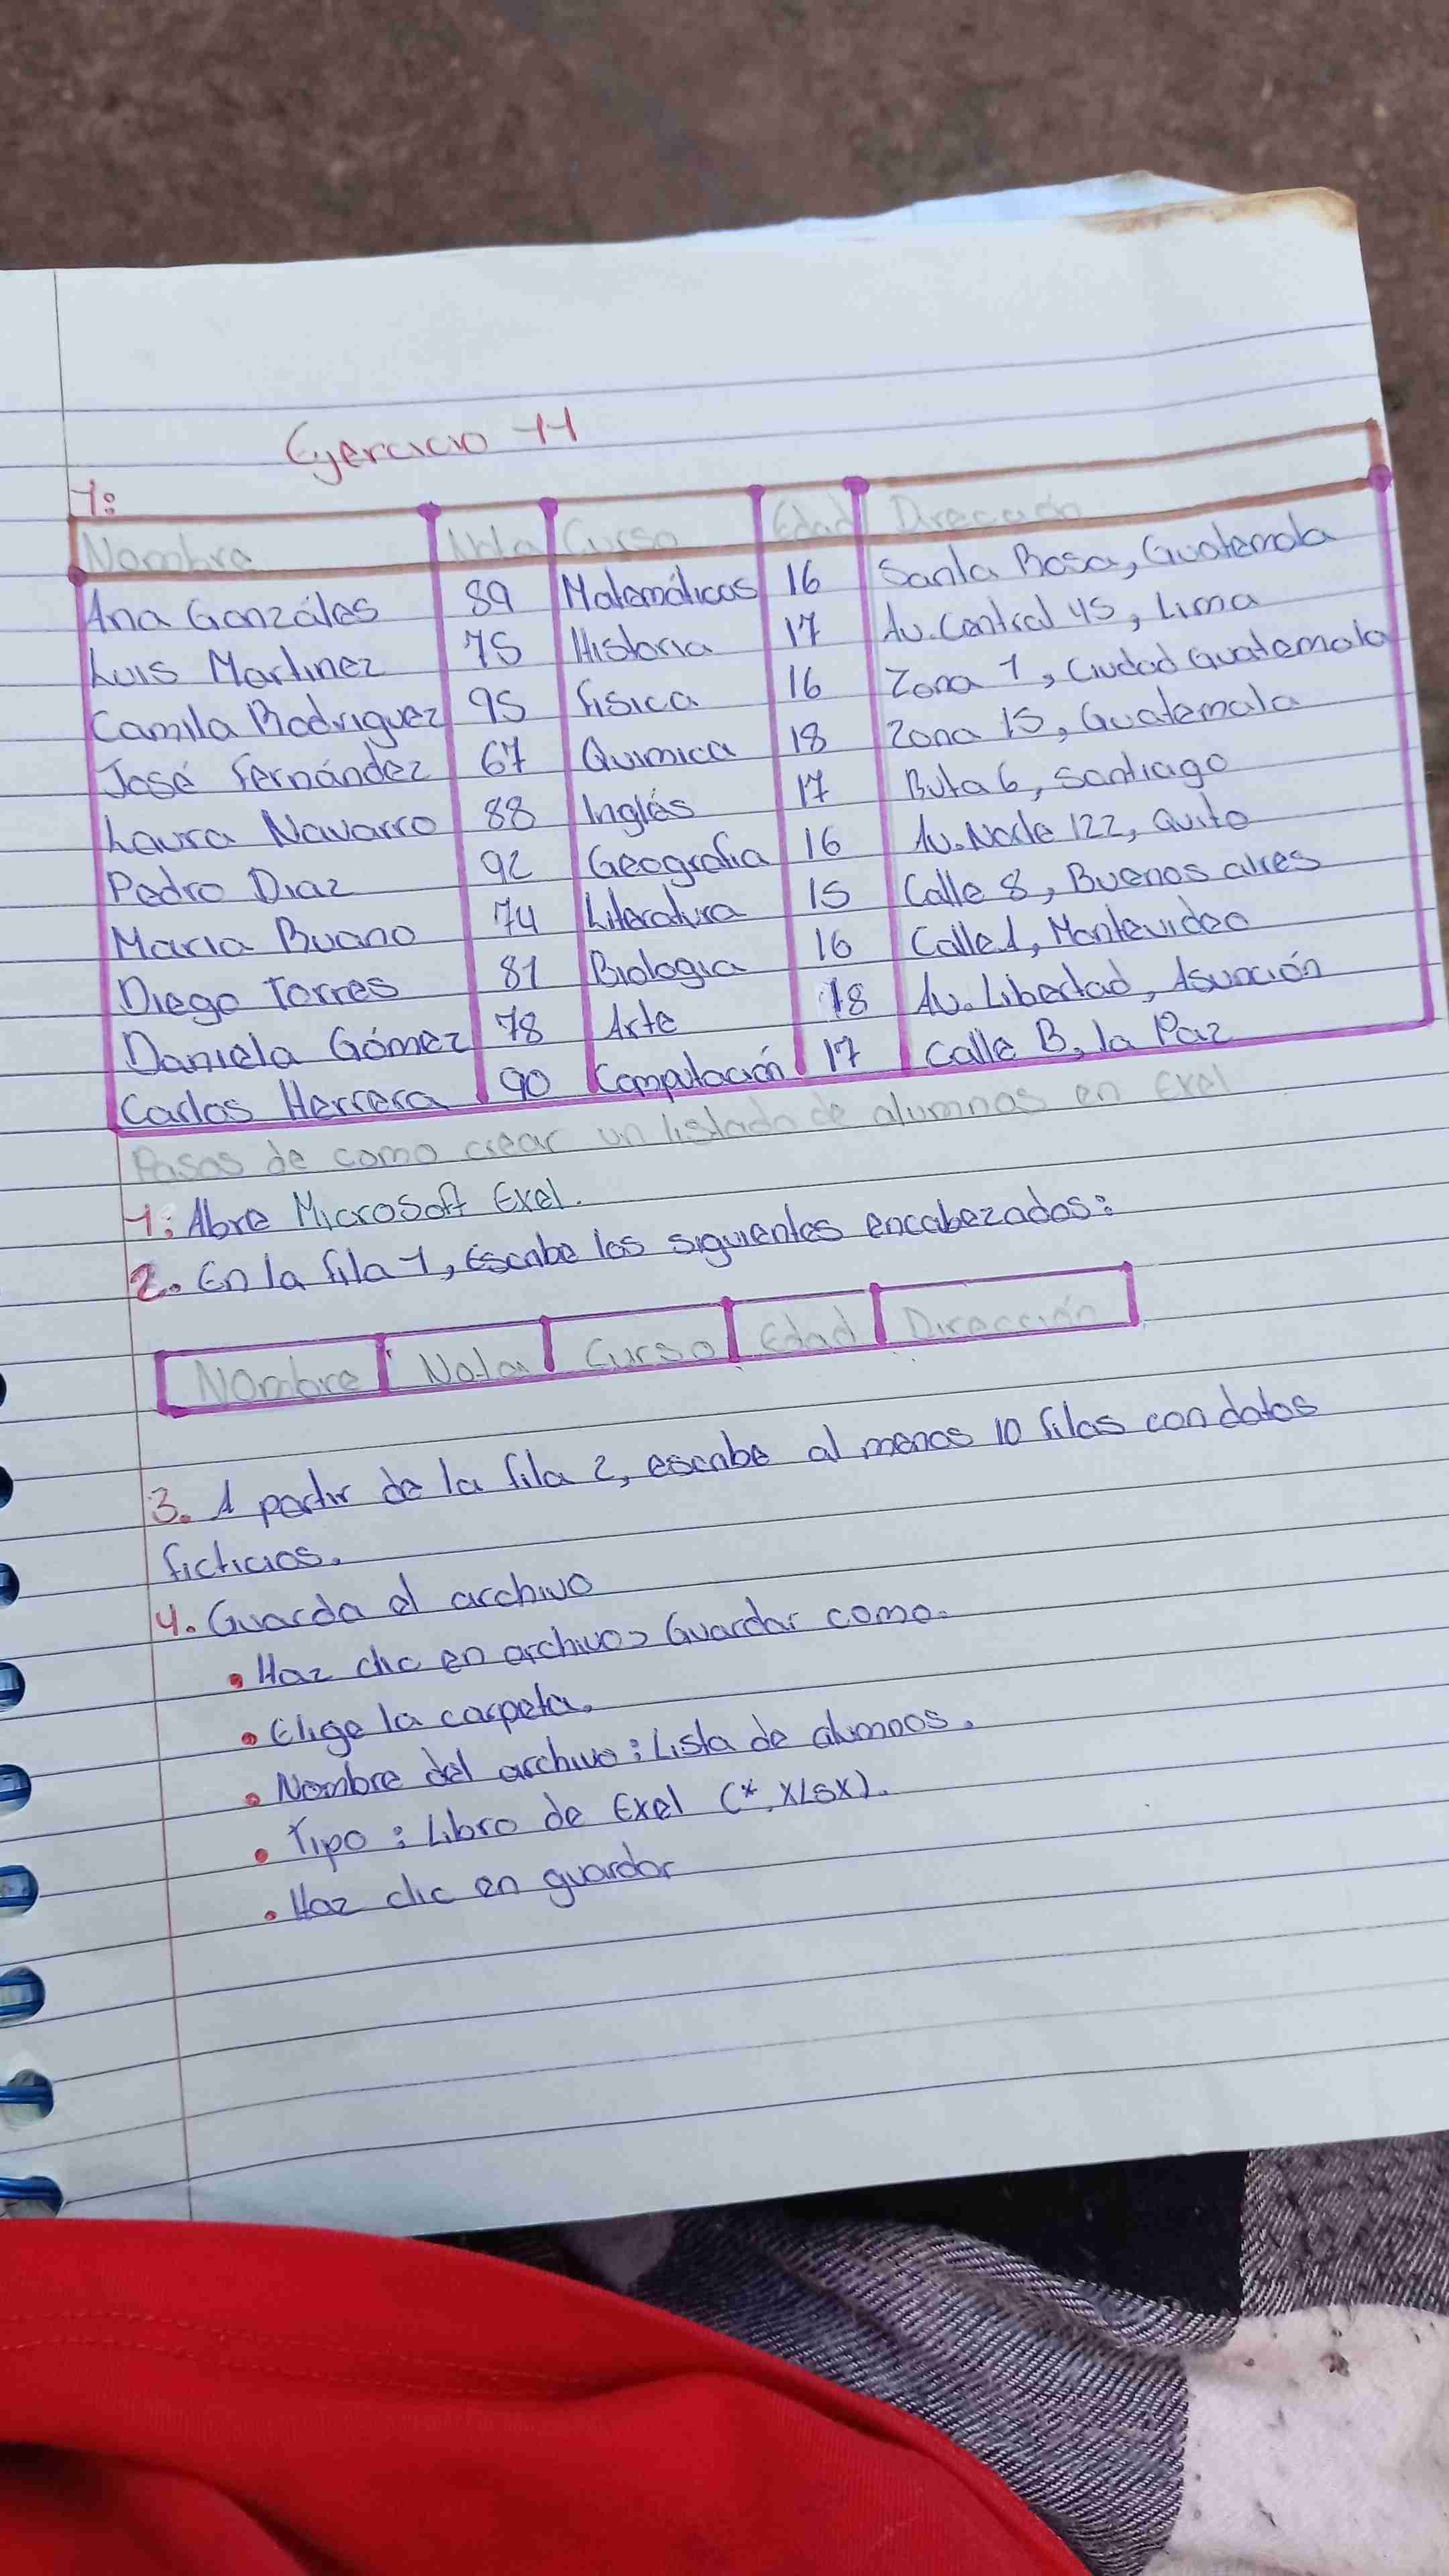 Ejercicio 11
1:
Nombre Nota Curso Edad Dirección
Ana Gonzáles 89 Matemáticas 16 Santa Rosa, Guatemala
Luis Martinez 75 Historia 17 Av. Central 45, Lima
Camila Rodriguez 95 física 16 Zona 1, Ciudad Guatemala
José fernández 67 Quimica 18 Zona 15, Guatemala
Laura Navarro 88 Inglés 17 Ruta 6, Santiago
Pedro Diaz 92 Geografia 16 Av. Norte 122, Quito
Maria Ruano 74 Literatura 15 Calle 8, Buenos aires
Diego Torres 81 Biologia 16 Calle 1, Montevideo
Daniela Gómez 78 Arte 18 Av. Libertad, Asunción
Carlos Herrera 90 Computación 17 Calle B, la Paz
Pasos de como crear un listado de alumnos en Exel
1: Abre Microsoft Exel.
2. En la fila 1, Escribe los siguientes encabezados:
Nombre Nota Curso Edad Dirección
3. A partir de la fila 2, escribe al menos 10 filas con datos
ficticios.
4. Guarda el archivo
• Haz clic en archivo> Guardar como.
• Elige la carpeta.
• Nombre del archivo: Lista de alumnos.
• Tipo: Libro de Exel (*.XLSX).
• Haz clic en guardar